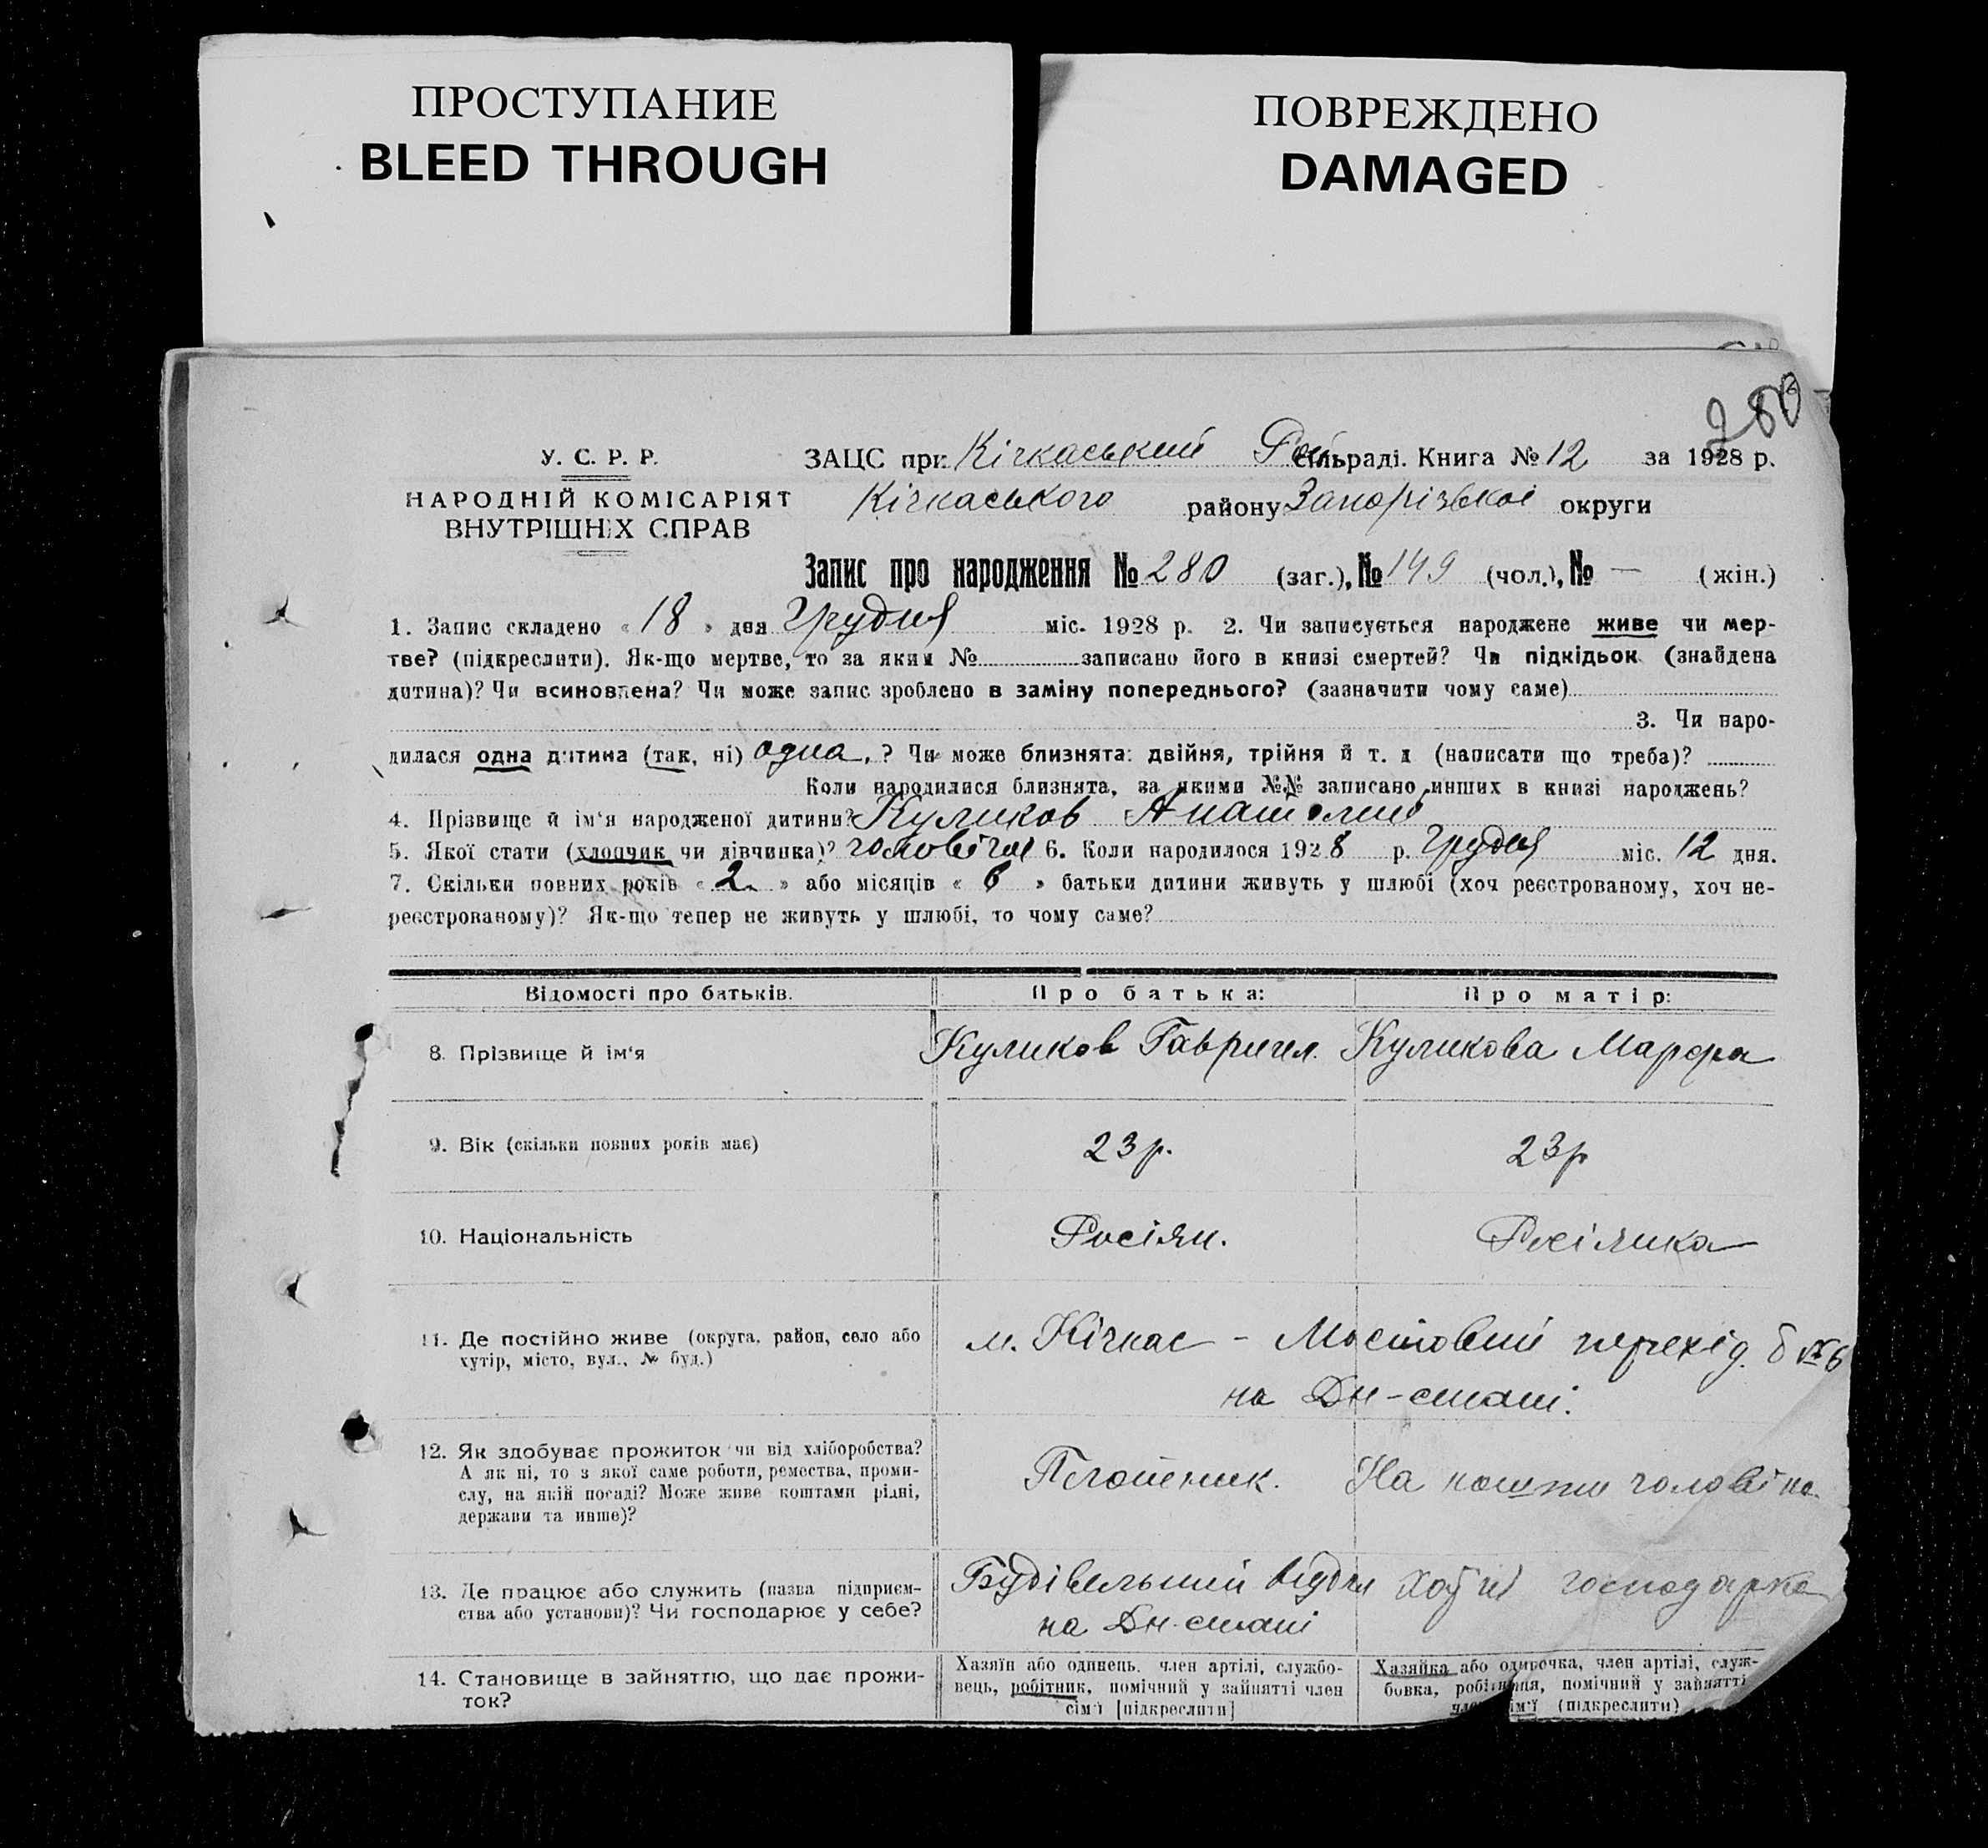 ПРОСТУПАНИЕ
BLEED THROUGH
ПОВРЕЖДЕНО
DAMAGED
280
У. С. Р. Р.
НАРОДНІЙ КОМІСАРІЯТ
ВНУТРІШНІХ СПРАВ
ЗАЦС при Кічкаський Рай сільраді. Книга № 12 за 1928 р.
Кічкаського району Запорізької округи
Запис про народження № 280 (заг.), № 149 (чол.), № — (жін.)
1. Запис складено « 18 » дня Грудня міс. 1928 р. 2. Чи записується народжене живе чи мер-
тве? (підкреслити). Як-що мертве, то за яким № записано його в книзі смертей? Чи підкідьок (знайдена
дитина)? Чи всиновлена? Чи може запис зроблено в заміну попереднього? (зазначити чому саме)
3. Чи наро-
дилася одна дитина (так, ні) одна. ? Чи може близнята: двійня, трійня й т. д (написати що треба)?
Коли народилися близнята, за якими №№ записано инших в книзі народжень?
4. Прізвище й ім'я народженої дитини? Куликов Анатолий
5. Якої стати (хлопчик чи дівчинка)? чоловічої 6. Коли народилося 1928 р. Грудня міс. 12 дня.
7. Скільки повних років « 2 » або місяців « 6 » батьки дитини живуть у шлюбі (хоч реєстрованому, хоч не-
реєстрованому)? Як-що тепер не живуть у шлюбі, то чому саме?
Відомості про батьків. Про батька: Про матір:
8. Прізвище й ім'я Куликов Гавриил. Куликова Марфа
9. Вік (скільки повних років має) 23 р. 23 р
10. Національність Росіян. Росіянка
11. Де постійно живе (округа, район, село або
хутір, місто, вул., № буд.)
м. Кічкас - Мостовий перехід. б № 6
на Дн-стані.
12. Як здобуває прожиток чи від хліборобства?
А як ні, то з якої саме роботи, ремества, проми-
слу, на якій посаді? Може живе коштами рідні,
держави та инше)?
На кошти чоловіка.
13. Де працює або служить (назва підприєм-
ства або установи)? Чи господарює у себе?
Будівельний відділ
на Дн. стані
господарка
14. Становище в зайняттю, що дає прожи-
ток?
Хазяїн або одинець. член артілі, службо-
вець, робітник, помічний у зайнятті член
сім'ї [підкреслити]
Хазяйка або одиночка, член артілі, служ-
бовка, робітниця, помічний у зайнятті
член сім'ї (підкреслити)